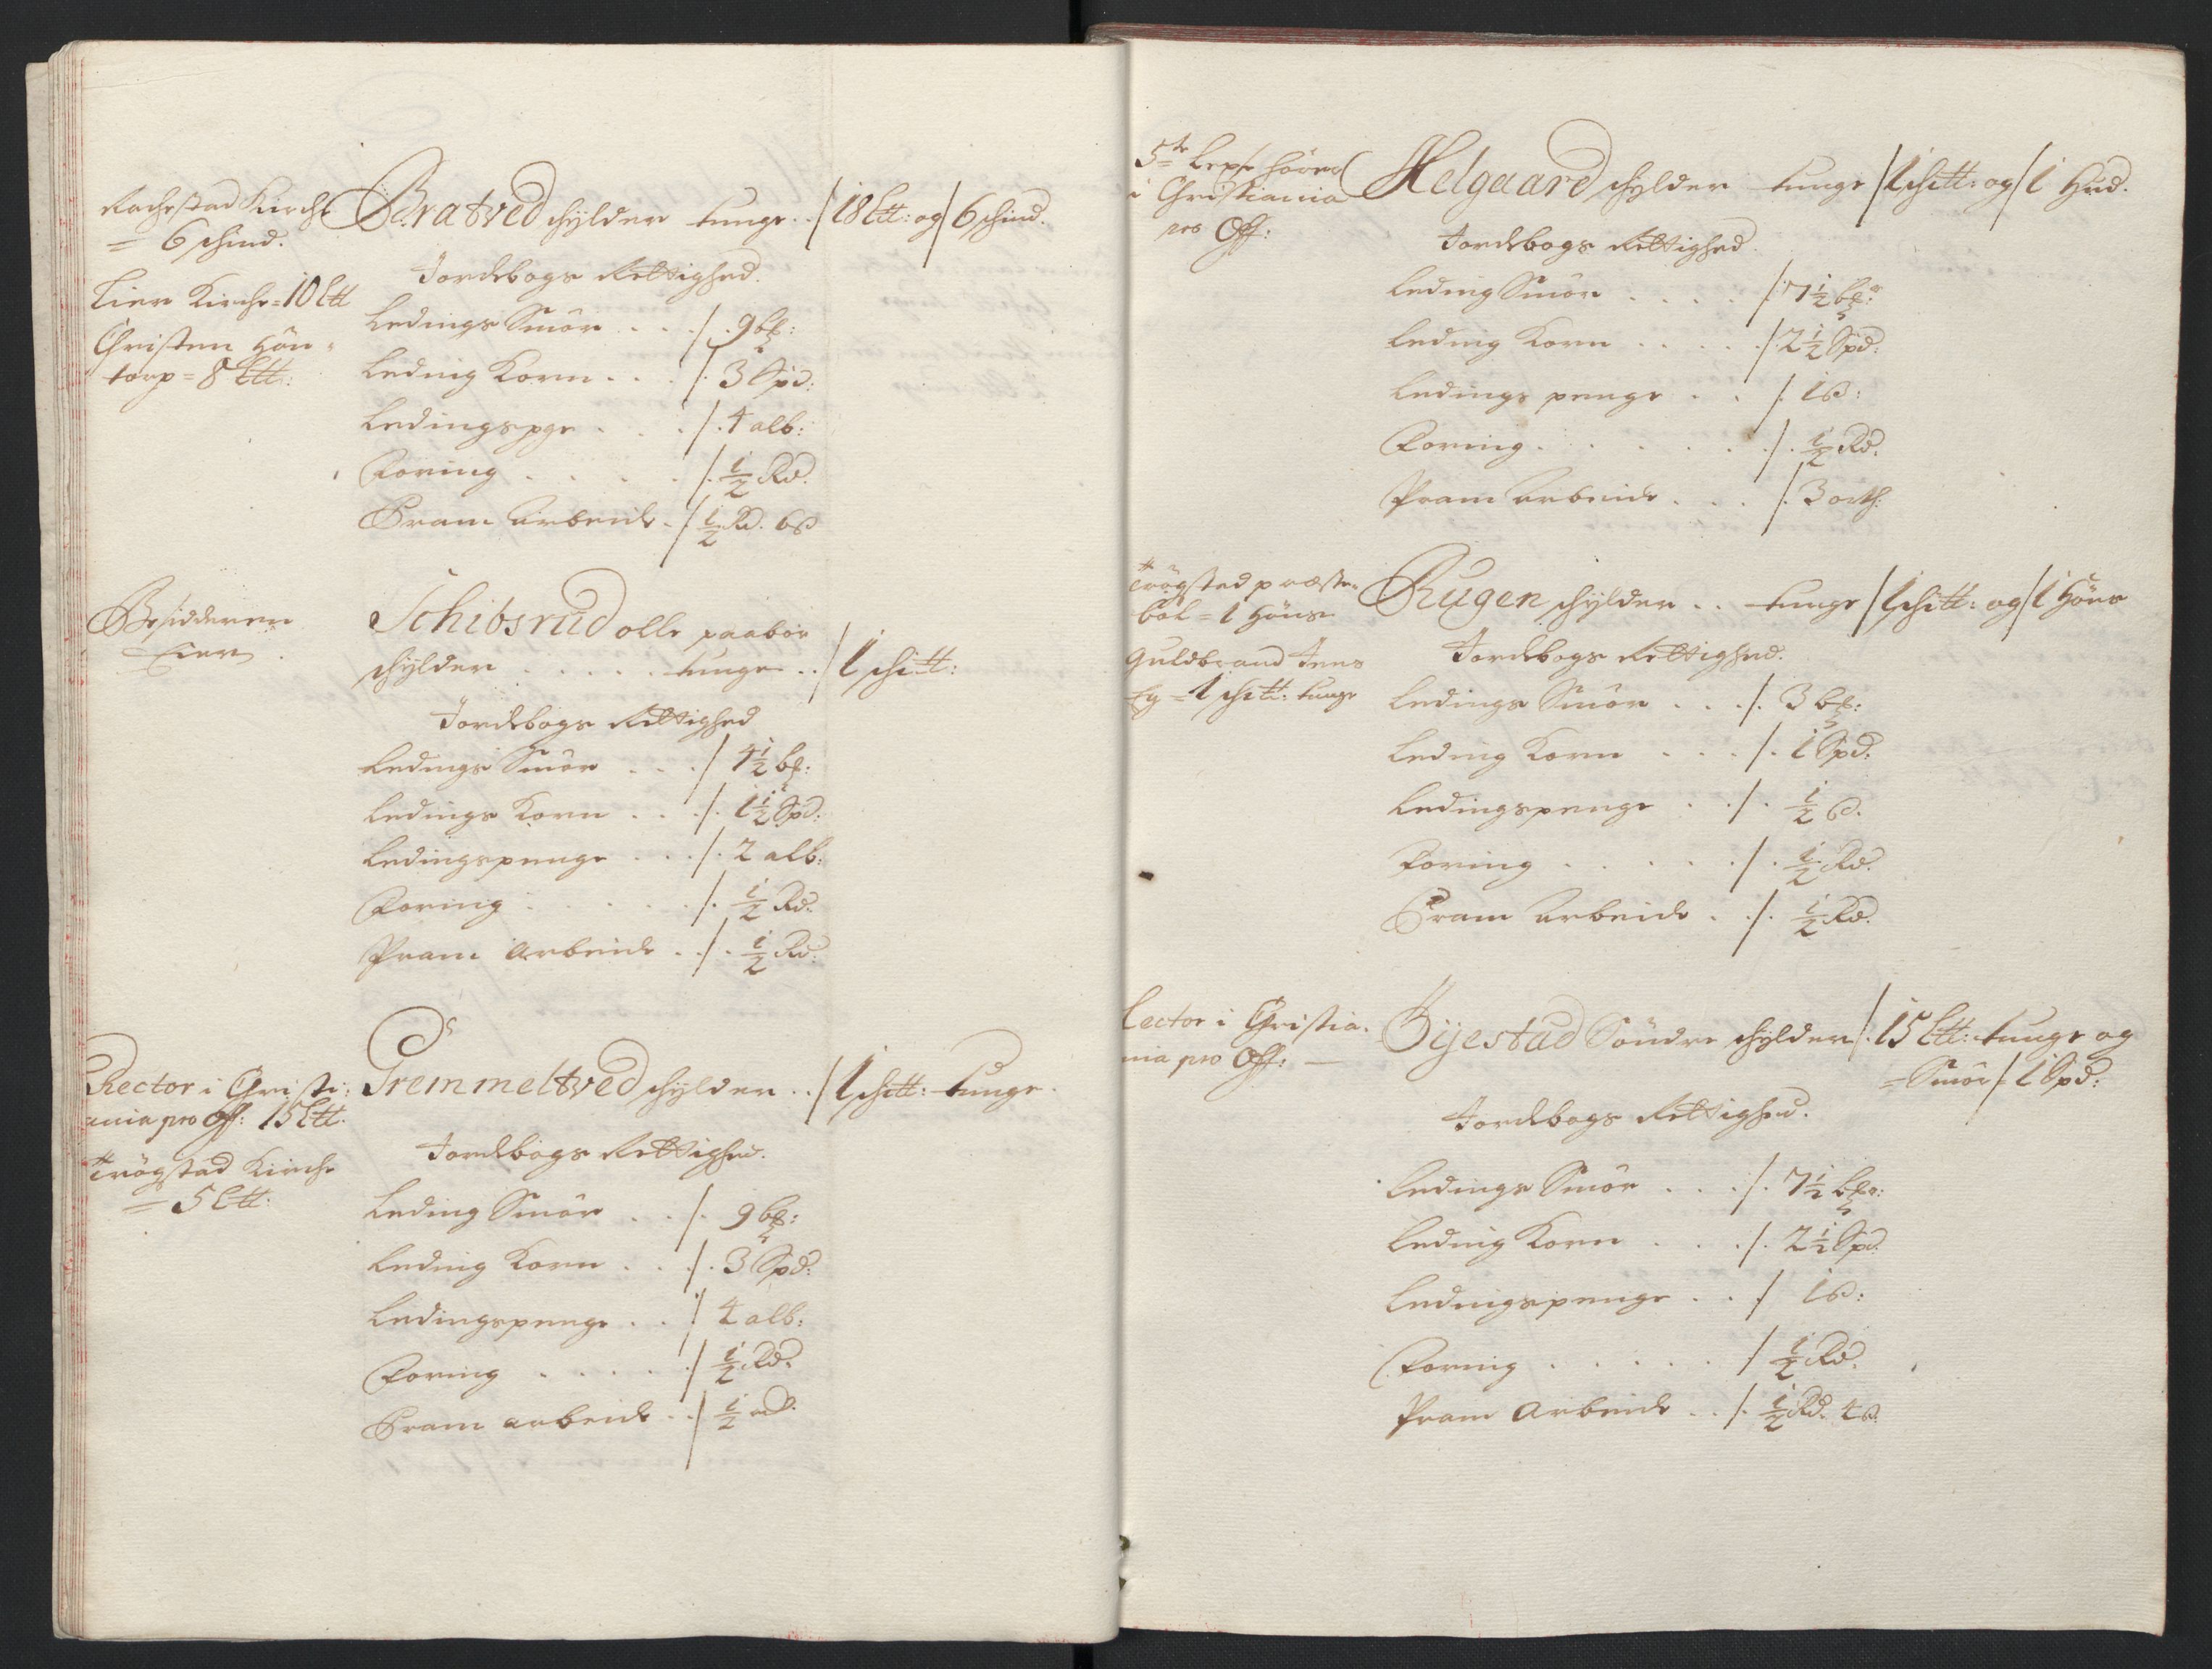 Rachestad Kirche
= 6 schind.
Lier Kirche = 10 Ltt
Christen Hön-
torp = 8 Ltt:
Bratved schylder tunge . . / 18 Ltt: og / 6 schind.
Jordebogs Rettighed.
Ledings Smör . . . / . 9 bł:
Leding Korn . . . / . 3 Spd:
Ledingspge . . . / . 4 alb:
Foring . . . . / . ½ Rd.
Pram Arbeide . / ½ Rd. 6 ß
Besidderen
Eier.
Schibsrud olle paaboe
schylder . . . . . tunge . . / 1 schtt:
Jordebogs Rettighed
Ledings Smör . . . / 4½ bł:
Ledings Korn . . . / . 1½ Spd:
Ledingspenge . . . / . 2 alb:
Foring . . . . . / . ½ Rd.
Pram Arbeide . . / . ½ Rd:
Rector i Christi-
ania pro Off: 15 Ltt.
Trögstad Kirche
= 5 Ltt:
Gremmeltved schylder . . / 1 schtt: tunge.
Jordebogs Rettighed.
Leding Smör . . . / . 9 bł:
Leding Korn . . . / . 3 Spd:
Ledingspenge . . / 4 alb:
Foring . . . . . / ½ Rd.
Pram arbeide . . / ½ rd.
5te Lexse hörer
i Christiania
pro Off:
Helgaard schylder tunge / 1 schtt: og / 1 Hud.
Jordebogs Rettighed.
Leding Smör . . . . / . 7½ bł:
Leding Korn . . . . / . 2½ Spd:
Ledings penge . . / . 1 ß:
Foring . . . . . / . ½ Rd.
Pram Arbeide . . . / . 3 orth:
Trögstad præste-
bol = 1 Höns
Guldbrand Jens
Eg = 1 schtt: tunge
Rugen schylder . . tunge / 1 schtt: og / 1 Höns
Jordebogs Rettighed.
Ledings Smör . . . / . 3 bł:
Leding Korn . . . / . 1 Spd:
Ledingspenge . . / . ½ ß.
Foring . . . . . / . ½ Rd.
Pram Arbeide . . / . ½ Rd.
Lector i Christia-
nia pro Off: —
Bijestad Söndre schylder / . 15 Ltt: tunge og
= Smör / 1 Spd:
Jordebogs Rettighed.
Ledings Smör . . . / . 7½ bł:
Leding Korn . . . / . 2½ Spd.
Ledingspenge . . / 1 ß:
Foring . . . . . / ½ Rd.
Pram Arbeide . . / . ½ Rd. 4 ß.